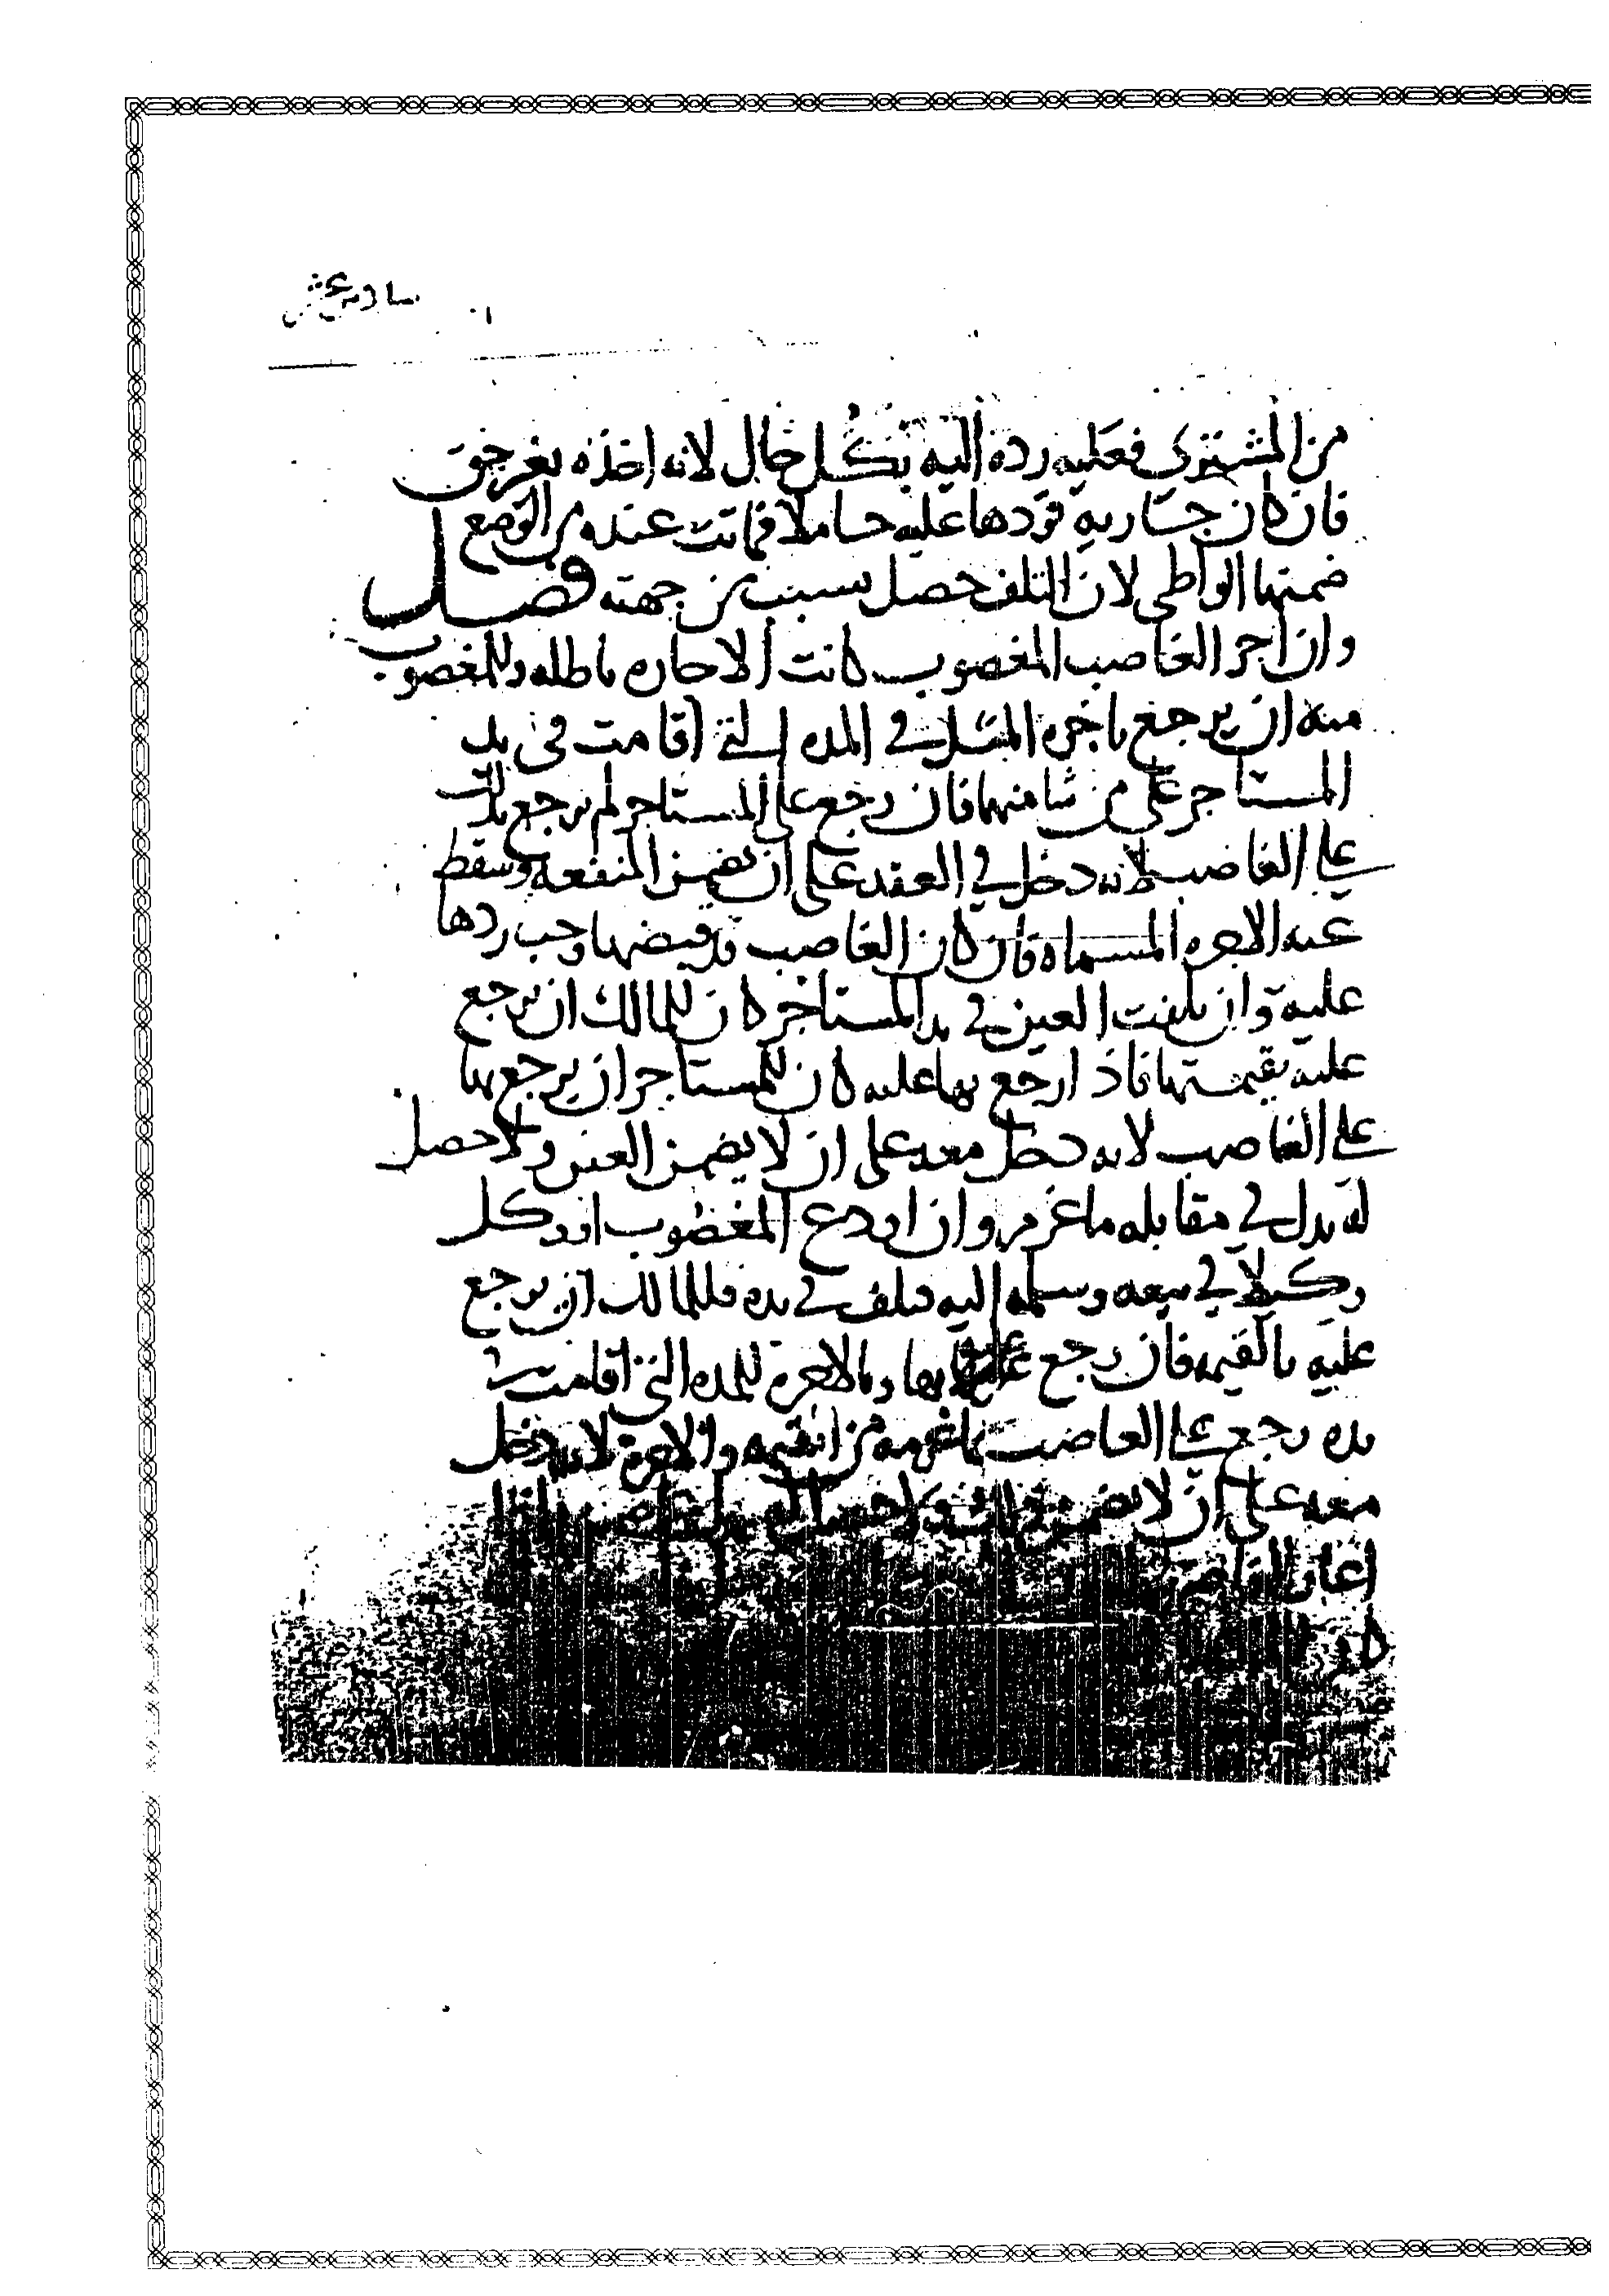 سادس عشر
من المشتري فعليه رده اليه بكل حال لانه اخذه بغير حق
فان كان جاريه فردها عليه حاملا فماتت عنده من الوضع
ضمنها الواطي لان التلف حصل بسبب من جهته فصل
وان اجر الغاصب المغصوب كانت الاجاره باطله وللمغصوب
منه ان يرجع باجره المثل في المده التي اقامت في يد
المستاجر على من شا منهما فان رجع على المستاجر لم يرجع بذلك
على الغاصب لانه دخل في العقد على ان يضمن المنفعه وسقط
عنه الاجره المسماه فان كان الغاصب قد قبضها وجب ردها
عليه وان تلفت العين في يد المستاجر كان للمالك ان يرجع
عليه بقيمتها فاذا رجع بها عليه كان للمستاجر ان يرجع بها
على الغاصب لانه دخل معه على ان لا يضمن العين ولا حصل
له بدل في مقابله ما غرم وان اودع المغصوب او وكل
وكيلا في بيعه وسلمه اليه فتلف في يده فللمالك ان يرجع
عليه بالقيمه فان رجع بها وبالاجره للمده التي اقامت في
يده رجع على الغاصب بما غرمه من القيمه والاجره لانه دخل
معه على ان لا يضمن
اعار الغاصب